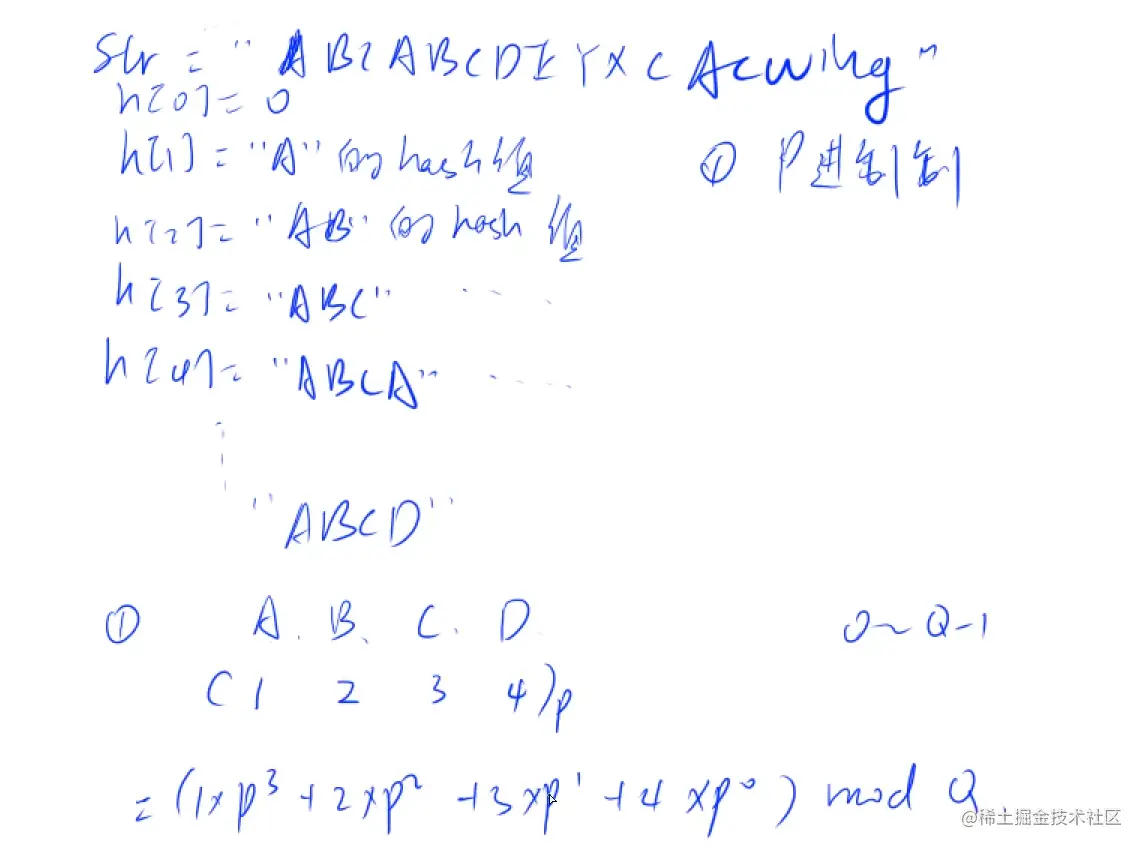 Str = "ABCABCDEYXCAcwing"
h[0] = 0
h[1] = "A" 的 hash 值
① P进制制
h[2] = "AB" 的 hash 值
h[3] = "ABC" ....
h[4] = "ABCA" .....
"ABCD"
① A. B、 C. D
0~Q-1
(1 2 3 4)p
= (1×p³ + 2×p² + 3×p¹ + 4×p⁰) mod Q
@稀土掘金技术社区